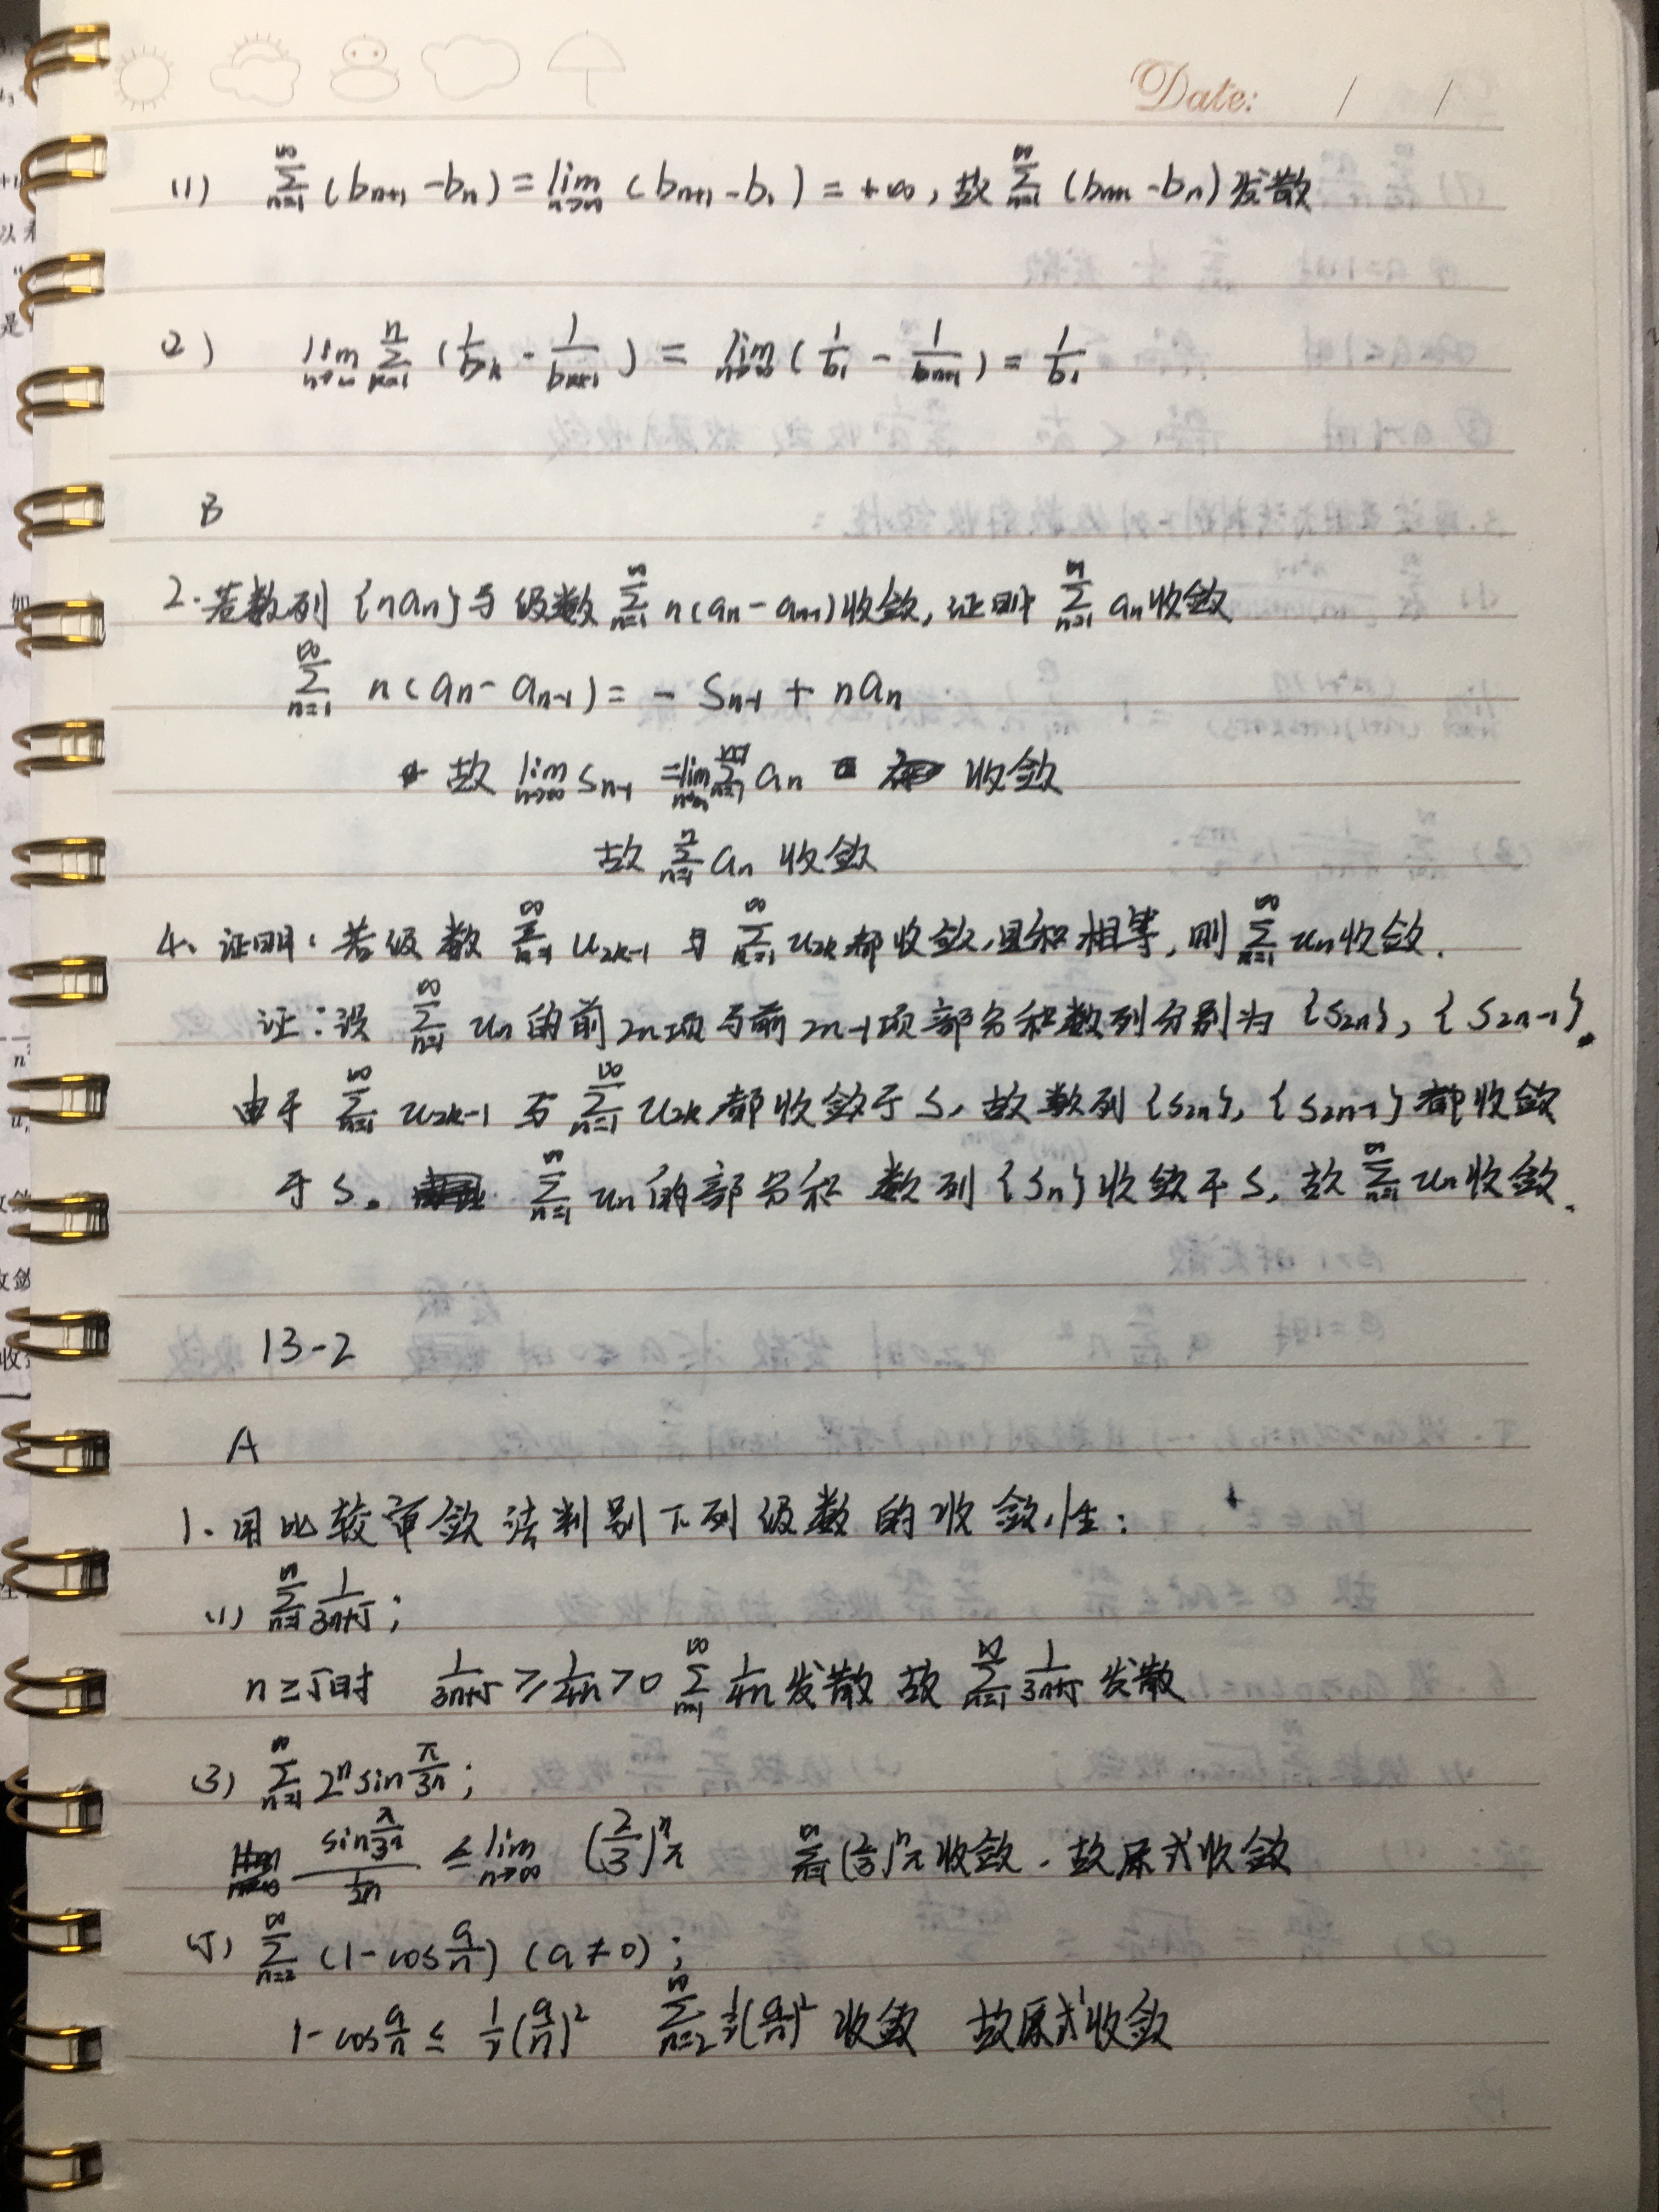 Date: / /
(1) $\sum_{n=1}^{\infty}(b_{n+1}-b_n)=\lim_{n\to\infty}(b_{n+1}-b_1)=+\infty$, 故 $\sum_{n=1}^{\infty}(b_{n+1}-b_n)$ 发散
(2) $\lim_{n\to\infty}\sum_{k=1}^{n}(\frac{1}{b_k}-\frac{1}{b_{k+1}})=\lim_{n\to\infty}(\frac{1}{b_1}-\frac{1}{b_{n+1}})=\frac{1}{b_1}$
B
2. 若数列{$na_n$}与级数 $\sum_{n=1}^{\infty}n(a_n-a_{n-1})$ 收敛, 证明 $\sum_{n=1}^{\infty}a_n$ 收敛
$\sum_{n=1}^{\infty}n(a_n-a_{n-1})=-S_{n-1}+na_n$
故 $\lim_{n\to\infty}S_{n-1}=\lim_{n\to\infty}\sum_{n=1}^{n-1}a_n$ 收敛
故 $\sum_{n=1}^{\infty}a_n$ 收敛
4、证明: 若级数 $\sum_{n=1}^{\infty}u_{2k-1}$ 与 $\sum_{n=1}^{\infty}u_{2k}$ 都收敛,且和相等, 则 $\sum_{n=1}^{\infty}u_n$ 收敛.
证:设 $\sum_{n=1}^{\infty}u_n$ 的前2n项与前2n-1项部分和数列分别为 {$S_{2n}$}, {$S_{2n-1}$}.
由于 $\sum_{n=1}^{\infty}u_{2k-1}$ 与 $\sum_{n=1}^{\infty}u_{2k}$ 都收敛于S, 故数列{$S_{2n}$}, {$S_{2n-1}$}都收敛
于S。 $\sum_{n=1}^{\infty}u_n$ 的部分和数列{$S_n$}收敛于S, 故 $\sum_{n=1}^{\infty}u_n$ 收敛.
13-2
A
1. 用比较审敛法判别下列级数的收敛性:
(1) $\sum_{n=1}^{\infty}\frac{1}{3n+5}$;
n≥5时 $\frac{1}{3n+5}\geq\frac{1}{4n}>0$ $\sum_{n=1}^{\infty}\frac{1}{4n}$ 发散 故 $\sum_{n=1}^{\infty}\frac{1}{3n+5}$ 发散
(3) $\sum_{n=1}^{\infty}2^n\sin\frac{\pi}{3^n}$;
$\frac{\sin\frac{\pi}{3^n}}{\frac{1}{2^n}}\leq\lim_{n\to\infty}(\frac{2}{3})^n\pi$ $\sum_{n=1}^{\infty}(\frac{2}{3})^n\pi$ 收敛. 故原式收敛
(5) $\sum_{n=2}^{\infty}(1-\cos\frac{a}{n})$ (a≠0);
$1-\cos\frac{a}{n}\leq\frac{1}{2}(\frac{a}{n})^2$ $\sum_{n=2}^{\infty}\frac{1}{2}(\frac{a}{n})^2$ 收敛 故原式收敛